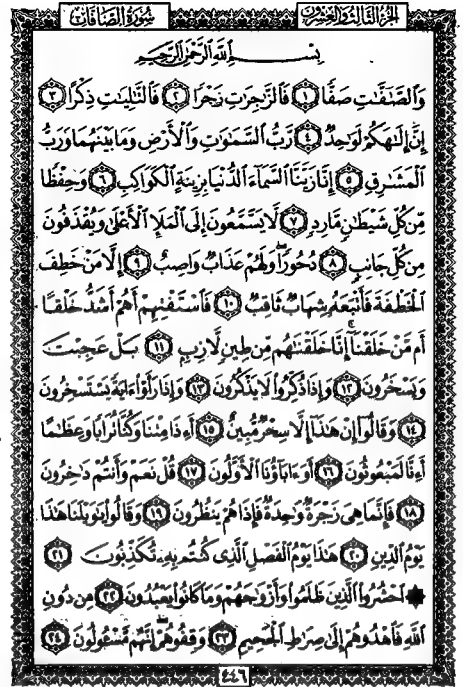 الجزء الثالث والعشرون
سورة الصافات
بِسْمِ اللَّهِ الرَّحْمَٰنِ الرَّحِيمِ
وَالصَّٰٓفَّٰتِ صَفًّا ١ فَالزَّٰجِرَٰتِ زَجْرًا ٢ فَالتَّٰلِيَٰتِ ذِكْرًا ٣
إِنَّ إِلَٰهَكُمْ لَوَٰحِدٌ ٤ رَّبُّ السَّمَٰوَٰتِ وَالْأَرْضِ وَمَا بَيْنَهُمَا وَرَبُّ
الْمَشَٰرِقِ ٥ إِنَّا زَيَّنَّا السَّمَآءَ الدُّنْيَا بِزِينَةٍ الْكَوَاكِبِ ٦ وَحِفْظًا
مِّن كُلِّ شَيْطَٰنٍ مَّارِدٍ ٧ لَّا يَسَّمَّعُونَ إِلَى الْمَلَإِ الْأَعْلَىٰ وَيُقْذَفُونَ
مِن كُلِّ جَانِبٍ ٨ دُحُورًا ۖ وَلَهُمْ عَذَابٌ وَاصِبٌ ٩ إِلَّا مَنْ خَطِفَ
الْخَطْفَةَ فَأَتْبَعَهُۥ شِهَابٌ ثَاقِبٌ ١٠ فَاسْتَفْتِهِمْ أَهُمْ أَشَدُّ خَلْقًا
أَم مَّنْ خَلَقْنَآ ۚ إِنَّا خَلَقْنَٰهُم مِّن طِينٍ لَّازِبٍ ١١ بَلْ عَجِبْتَ
وَيَسْخَرُونَ ١٢ وَإِذَا ذُكِّرُوا۟ لَا يَذْكُرُونَ ١٣ وَإِذَا رَأَوْا۟ ءَايَةً يَسْتَسْخِرُونَ
١٤ وَقَالُوٓا۟ إِنْ هَٰذَآ إِلَّا سِحْرٌ مُّبِينٌ ١٥ أَءِذَا مِتْنَا وَكُنَّا تُرَابًا وَعِظَٰمًا
أَءِنَّا لَمَبْعُوثُونَ ١٦ أَوَءَابَآؤُنَا الْأَوَّلُونَ ١٧ قُلْ نَعَمْ وَأَنتُمْ دَٰخِرُونَ
١٨ فَإِنَّمَا هِىَ زَجْرَةٌ وَٰحِدَةٌ فَإِذَا هُمْ يَنظُرُونَ ١٩ وَقَالُوا۟ يَٰوَيْلَنَا هَٰذَا
يَوْمُ الدِّينِ ٢٠ هَٰذَا يَوْمُ الْفَصْلِ الَّذِى كُنتُم بِهِۦ تُكَذِّبُونَ ٢١
۞ احْشُرُوا۟ الَّذِينَ ظَلَمُوا۟ وَأَزْوَٰجَهُمْ وَمَا كَانُوا۟ يَعْبُدُونَ ٢٢ مِن دُونِ
اللَّهِ فَاهْدُوهُمْ إِلَىٰ صِرَٰطِ الْجَحِيمِ ٢٣ وَقِفُوهُمْ ۖ إِنَّهُم مَّسْـُٔولُونَ ٢٤
٤٤٦